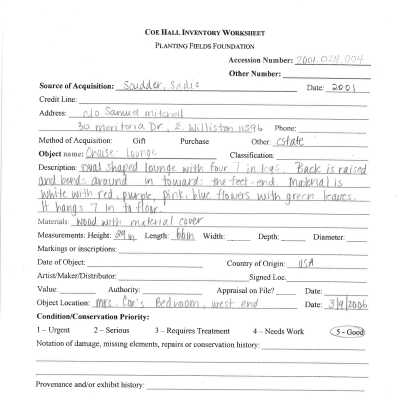 COE HALL INVENTORY WORKSHEET
PLANTING FIELDS FOUNDATION
Accession Number: 2001.024.004
Other Number:
Source of Acquisition: Scudder, Sadie Date: 2001
Credit Line:
Address: c/o Samuel Mitchell
30 Dr, E. Williston 11596 Phone:
Method of Acquisition: Gift Purchase Other estate
Object name: Chaise lounge Classification:
Description: oval shaped lounge with four 7 in legs. Back is raised
and bends around in toward the feet-end. Material is
white with red, purple, pink, blue flowers with green leaves.
It hangs 7 in to floor.
Materials: wood with material cover
Measurements: Height: 29in Length: 66in Width: Depth: Diameter:
Markings or inscriptions:
Date of Object: Country of Origin: USA
Artist/Maker/Distributor: Signed Loc.
Value: Authority: Appraisal on File? Date:
Object Location: Mrs. Coe's Bedroom, west end Date: 3/9/2006
Condition/Conservation Priority:
1 – Urgent 2 – Serious 3 – Requires Treatment 4 – Needs Work 5 - Good
Notation of damage, missing elements, repairs or conservation history:
Provenance and/or exhibit history: